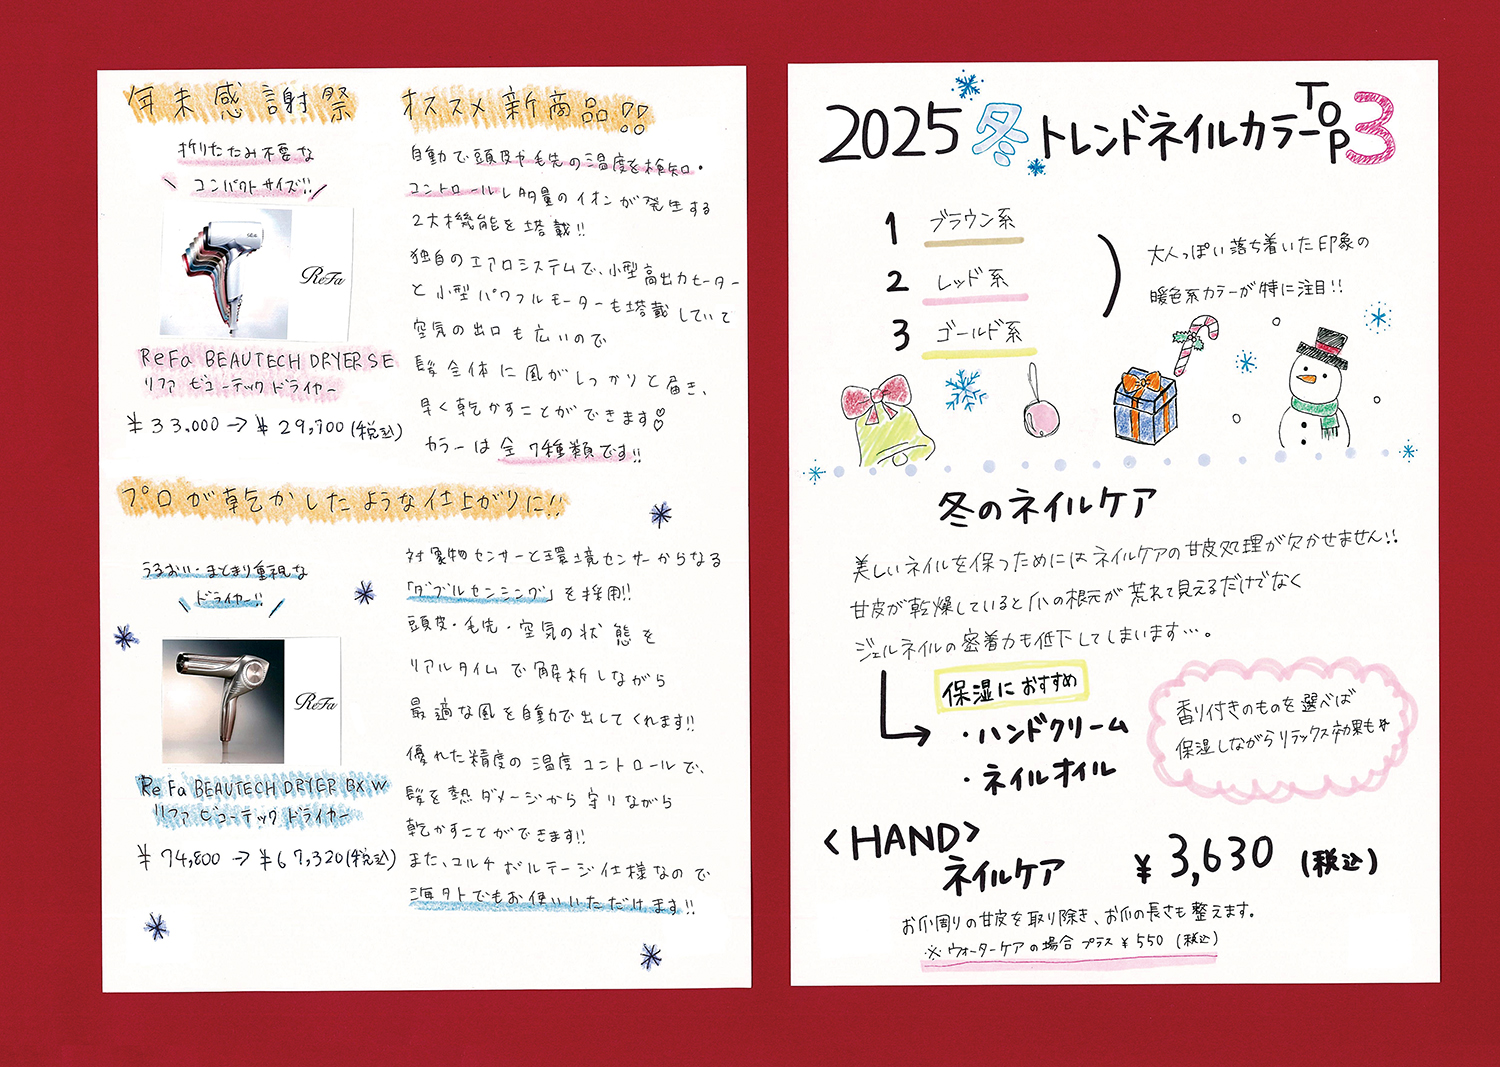 年末感謝祭
折りたたみ不要な
コンパクトサイズ!!
ReFa
ReFa BEAUTECH DRYER SE
リファ ビューテック ドライヤー
¥33,000→¥29,700(税込)
オススメ新商品!!
自動で頭皮や毛先の温度を検知・
コントロールし多量のイオンが発生する
2大機能を搭載!!
独自のエアロシステムで、小型高出力モーター
と小型パワフルモーターも搭載していて
空気の出口も広いので
髪全体に風がしっかりと届き、
早く乾かすことができます♡
カラーは全7種類です!!
プロが乾かしたような仕上がりに!!
うるおい・まとまり重視な
ドライヤー!!
ReFa
ReFa BEAUTECH DRYER BX W
リファ ビューテック ドライヤー
¥74,800→¥67,320(税込)
対象物センサーと環境センサーからなる
「ダブルセンシング」を採用!!
頭皮・毛先・空気の状態を
リアルタイムで解析しながら
最適な風を自動で出してくれます!!
優れた精度の温度コントロールで、
髪を熱ダメージから守りながら
乾かすことができます!!
また、コルチボルテージ仕様なので
海外でもお使いいただけます!!
2025 冬 トレンドネイルカラー TOP 3
1 ブラウン系
2 レッド系
3 ゴールド系
大人っぽい落ち着いた印象の
暖色系カラーが特に注目!!
冬のネイルケア
美しいネイルを保つためにはネイルケアの甘皮処理が欠かせません!!
甘皮が乾燥していると爪の根元が荒れて見えるだけでなく
ジェルネイルの密着力も低下してしまいます…。
保湿におすすめ
・ハンドクリーム
・ネイルオイル
香り付きのものを選べば
保湿しながらリラックス効果も☆
<HAND>
ネイルケア ¥3,630 (税込)
お爪周りの甘皮を取り除き、お爪の長さも整えます。
※ウォーターケアの場合プラス¥550(税込)